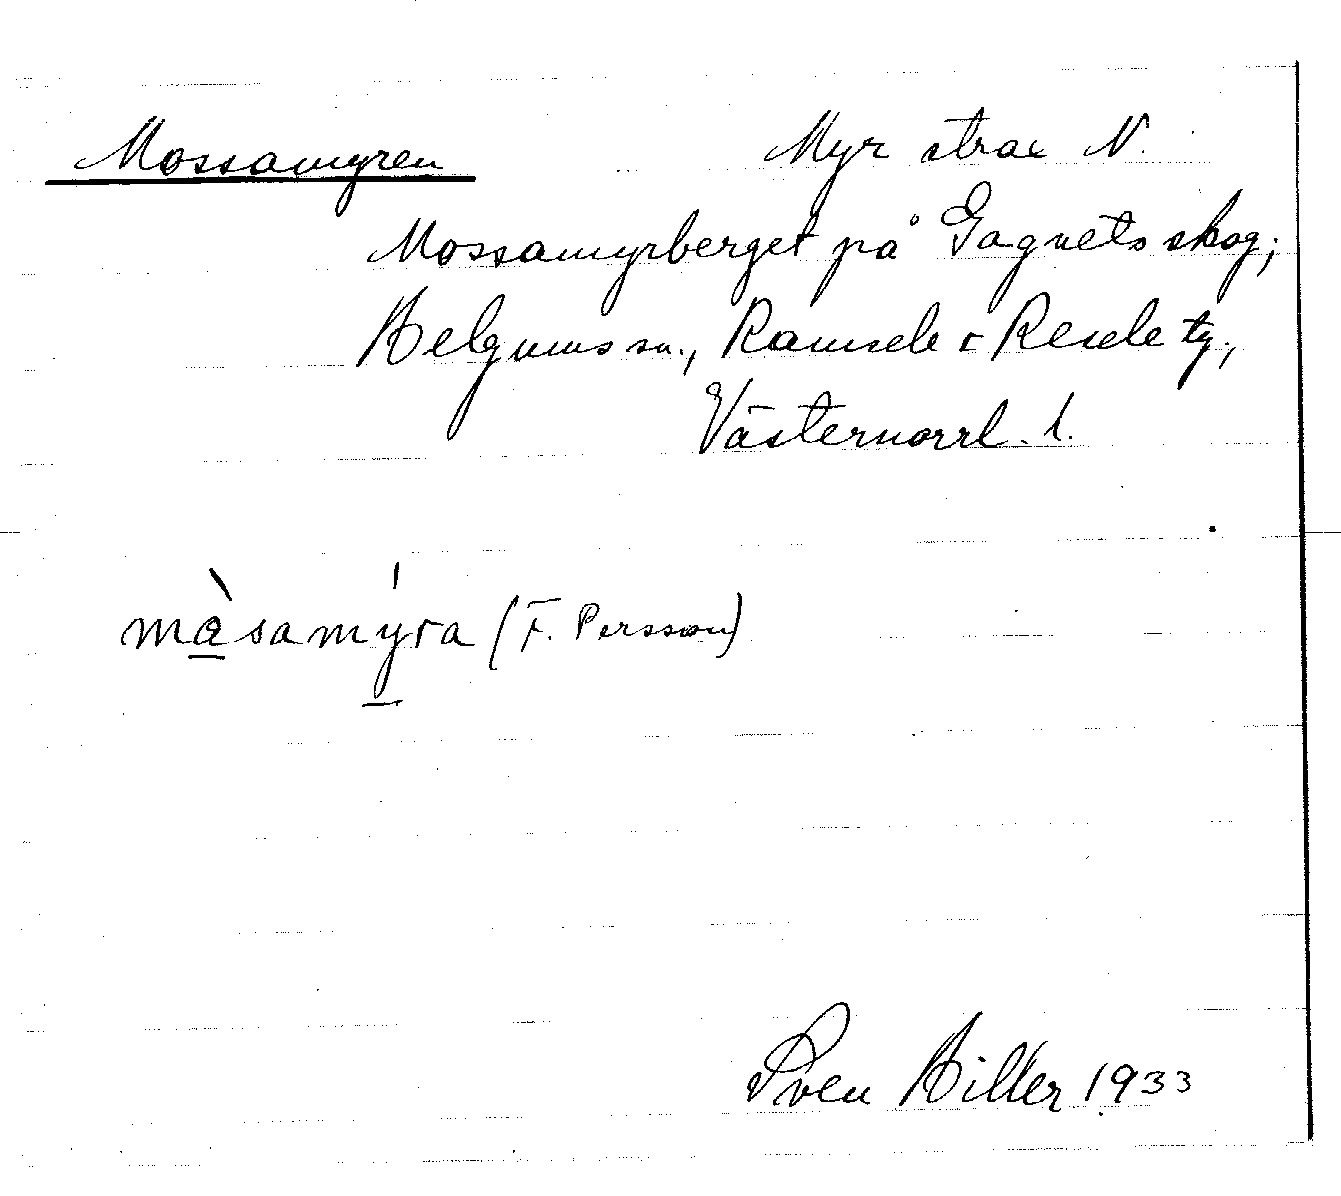 Mossamyren Myr strax N.
Mossamyrberget på Gagnets skog;
Helgums sn., Ramsele o Resele tg,
Västernorrl. l.
màsamýra (F. Persson)
Sven Hiller 1933